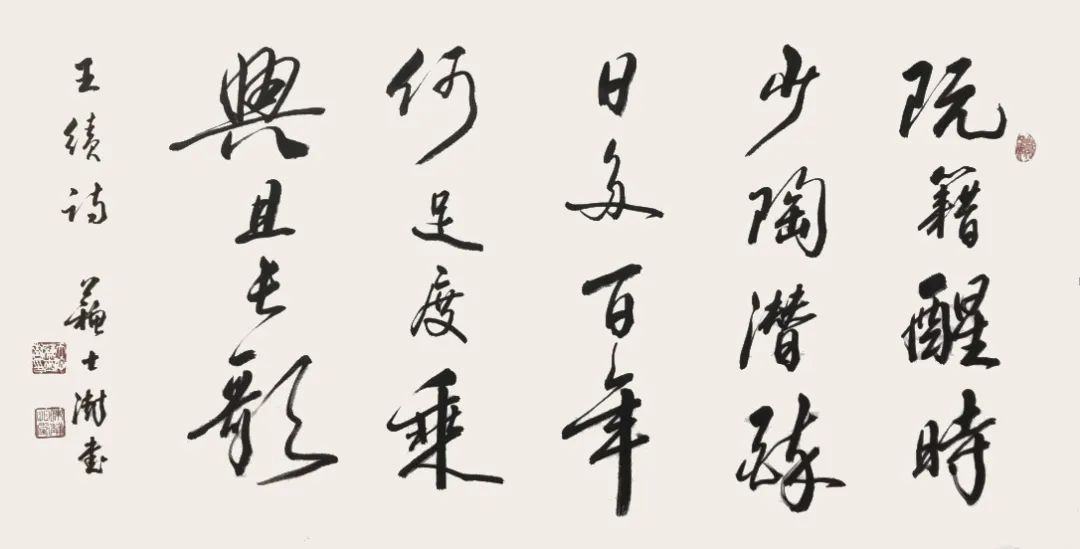 阮籍醒時
少陶潜醉
日多百年
何足度乘
興且長歌
王績詩 蘇士澍書